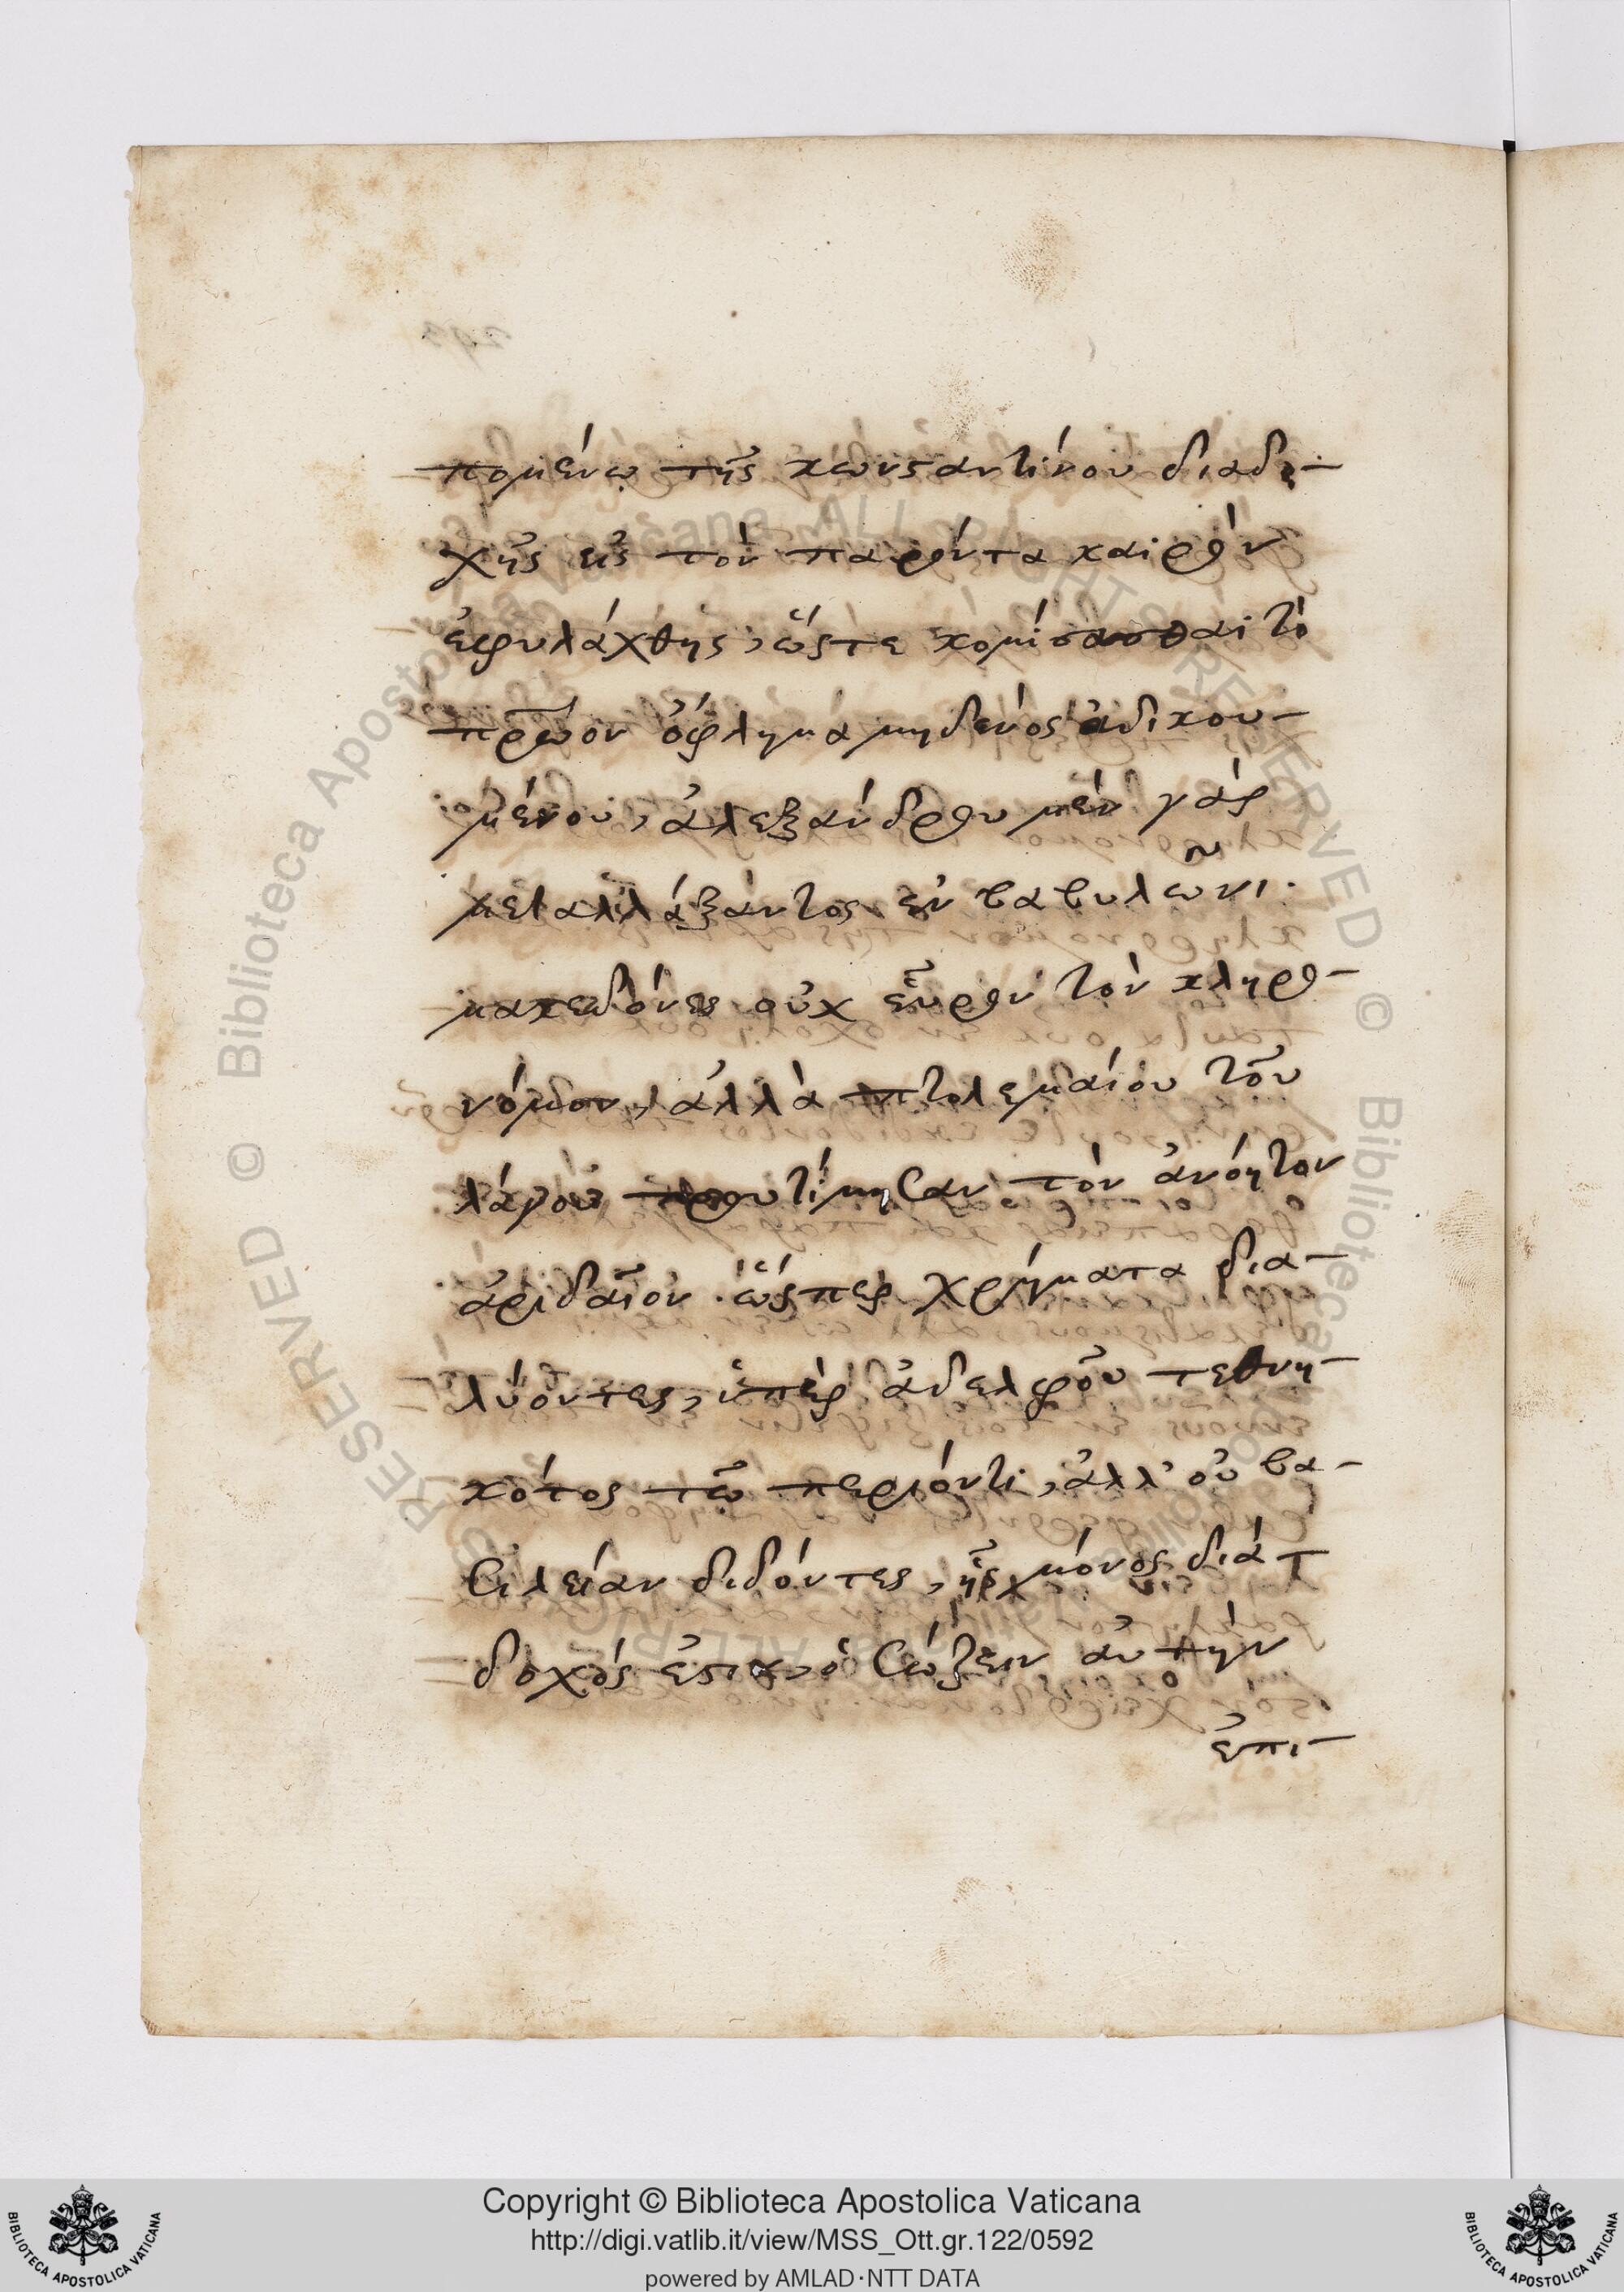 πομένω τῆς κωνσαντίνου διαδο-
χῆς εἰς τὸν παρόντα καιρὸν
ἐφυλάχθης, ὥςτε κομίσασθαι τὸ
πρῶον ὄφλημα μηδενὸς ἀδικου-
μένου, ἀλεξάνδρου μὲν γὰρ
μεταλλάξαντος ἐν βαβυλῶνι.
μακεδόνες οὐχ εὗρον τὸν κληρο-
νόμον, ἀλλὰ πτολεμαίου τοῦ
λάγου προυτίμησαν τὸν ἀνόητον
ἀριδαῖον. ὥςπερ χρήματα δια-
λύοντες, ὑπὲρ ἀδελφοῦ τεθνη-
κότος τῶ περιόντι, ἀλλ' οὐ βα-
σιλείαν διδόντες, ἧς μόνος διά-
δοχός ἐστιν, ὁ σώζειν αὐτὴν
ἐπι-
Copyright © Biblioteca Apostolica Vaticana
http://digi.vatlib.it/view/MSS_Ott.gr.122/0592
powered by AMLAD·NTT DATA
BIBLIOTECA APOSTOLICA VATICANA
BIBLIOTECA APOSTOLICA VATICANA